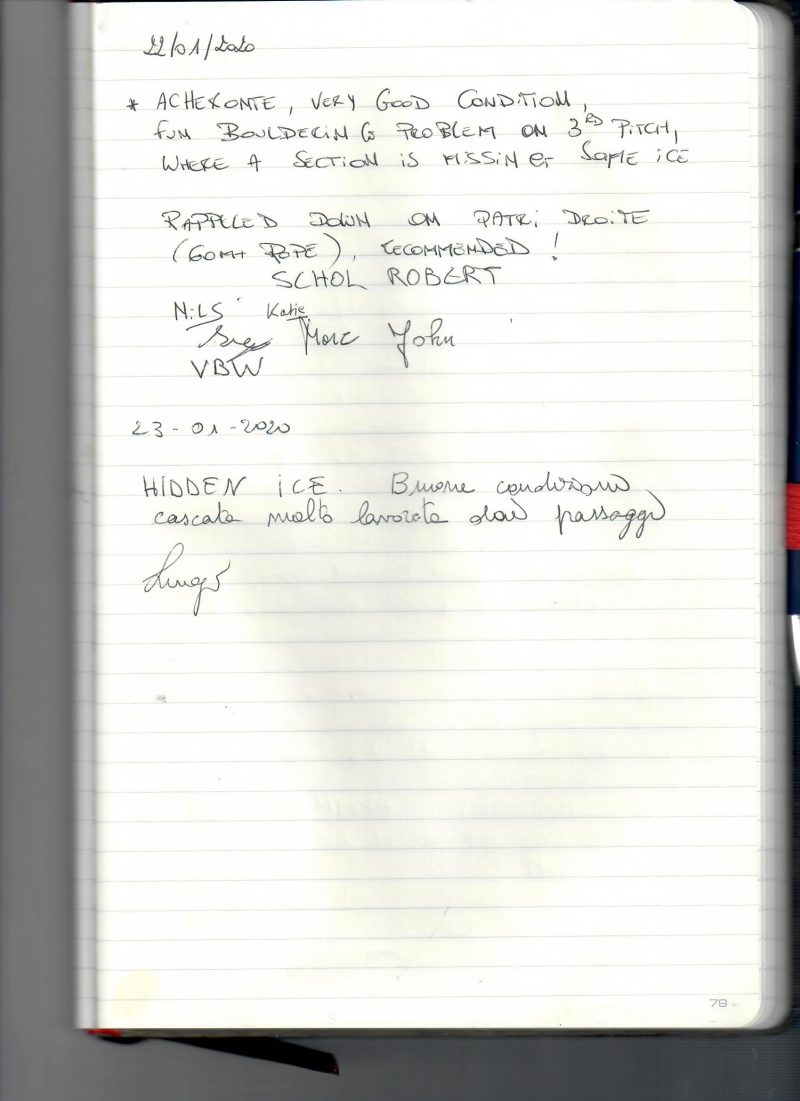 22/01/2020
* ACHERONTE, VERY GOOD CONDITION,
FUN BOULDERING PROBLEM ON 3RD PITCH,
WHERE A SECTION IS MISSING SOME ICE
RAPPELED DOWN ON PATRI DROITE
(60M+ ROPE), RECOMMENDED!
SCHOL ROBERT
NiLS Katie
Marc John
VBW
23-01-2020
HIDDEN ICE. Buone condizioni,
cascata molto lavorata dai passaggi
79